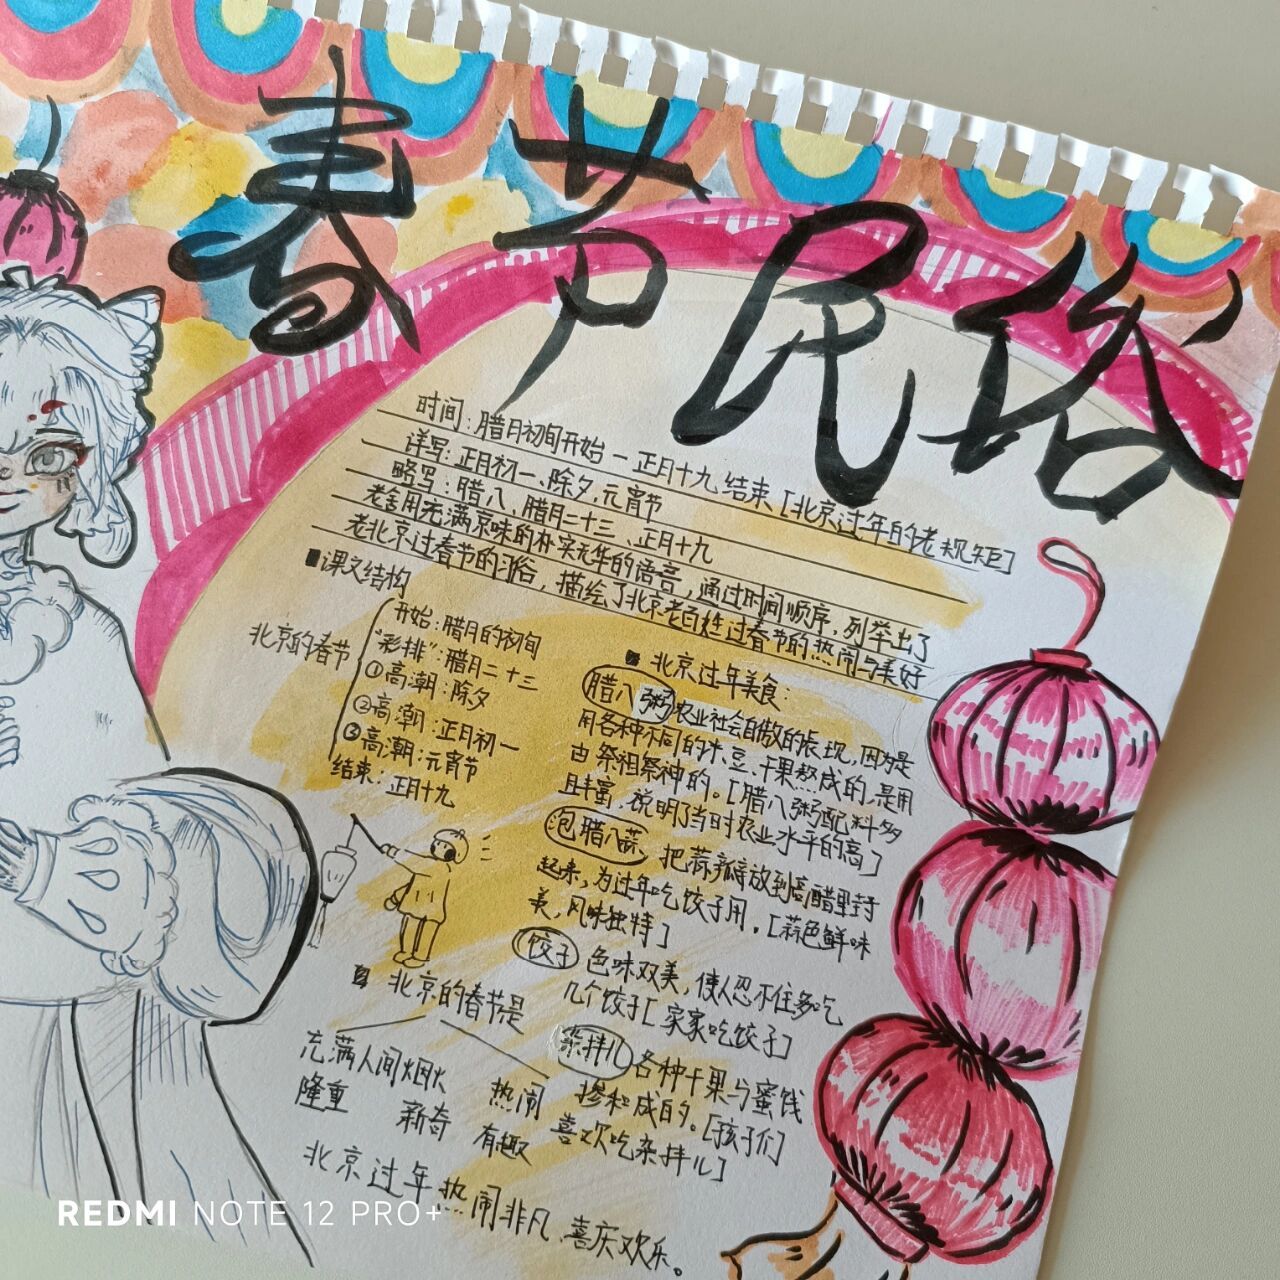 春节民俗
时间：腊月初旬开始—正月十九结束[北京过年的老规矩]
详写：正月初一、除夕、元宵节
略写：腊八、腊月二十三、正月十九
老舍用充满京味的朴实无华的语言，通过时间顺序，列举出了
老北京过春节的习俗，描绘了北京老百姓过春节的热闹与美好
■课文结构
北京的春节
开始：腊月的初旬
"彩排"：腊月二十三
①高潮：除夕
②高潮：正月初一
③高潮：元宵节
结束：正月十九
■ 北京过年美食：
腊八粥 农业社会自傲的表现，因为是
用各种不同的米、豆、干果熬成的，是用
由祭祖祭神的。[腊八粥配料多
且丰富，说明了当时农业水平的高]
泡腊八蒜，把蒜瓣放到高醋里封
起来，为过年吃饺子用。[蒜色鲜味
美，风味独特]
饺子 色味双美，使人忍不住多吃
几个饺子[家家吃饺子]
杂拌儿 各种干果与蜜饯
掺和成的。[孩子们
喜欢吃杂拌儿]
北京的春节是
充满人间烟火
隆重 新奇
热闹
有趣
北京过年热闹非凡、喜庆欢乐。
REDMI NOTE 12 PRO+